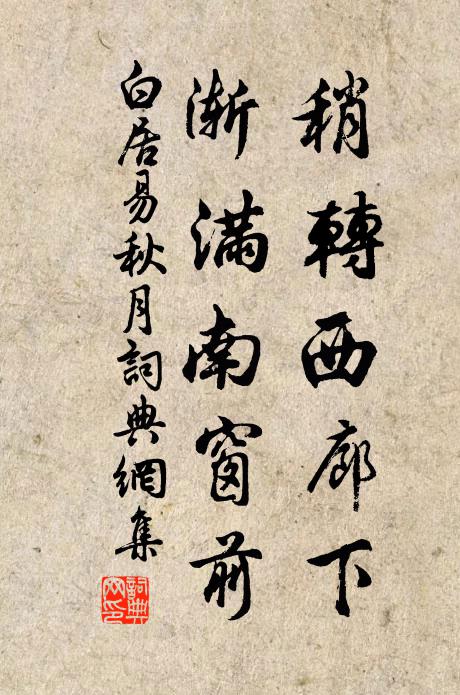 稍轉西廊下
漸滿南窗前
白居易秋月詞典網集
詞典
网印